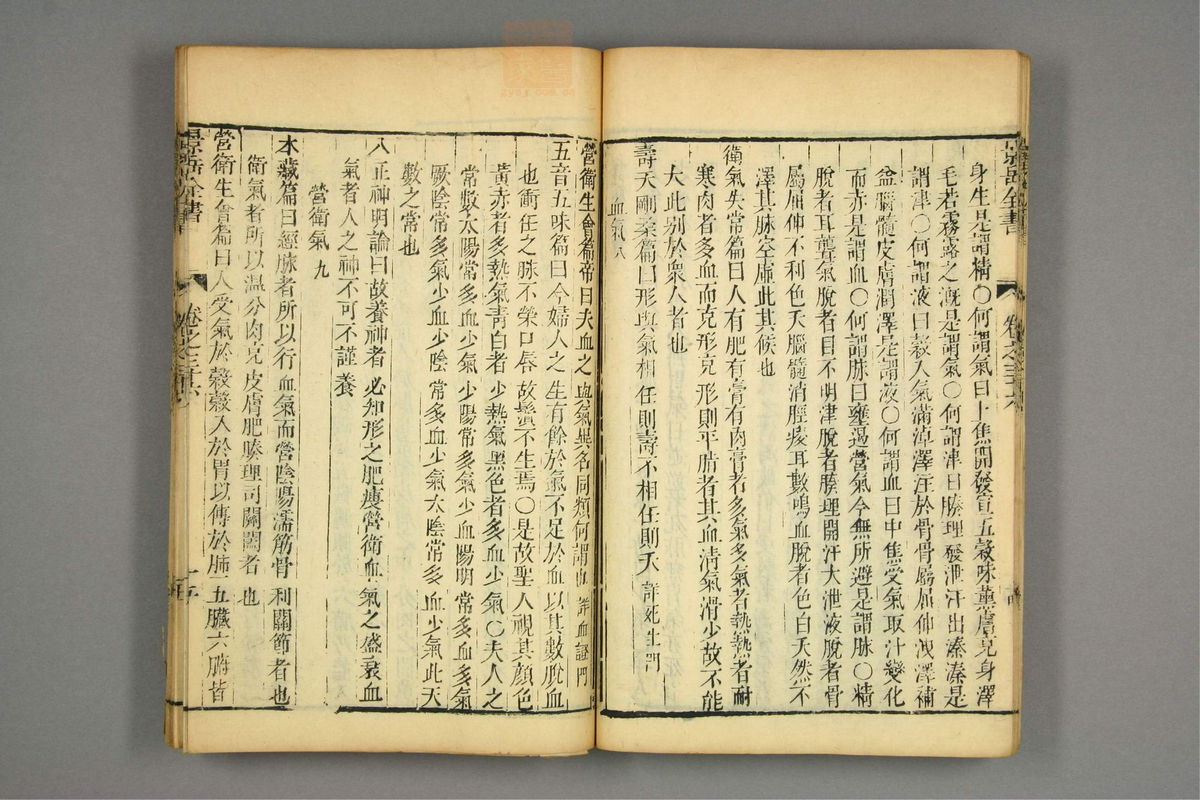 景岳全書
卷之三十六
身生是謂精○何謂氣曰上焦開發宣五穀味薰膚充身澤
毛若霧露之溉是謂氣○何謂津曰腠理發泄汗出溱溱是
謂津○何謂液曰穀入氣滿淖澤注於骨骨屬屈伸洩澤補
益腦髓皮膚潤澤是謂液○何謂血曰中焦受氣取汁變化
而赤是謂血○何謂脉曰壅遏營氣令無所避是謂脉○精
脫者耳聾氣脫者目不明津脫者腠理開汗大泄液脫者骨
屬屈伸不利色夭腦髓消脛痠耳數鳴血脫者色白夭然不
澤其脉空虛此其候也
衛氣失常篇曰人有肥有膏有肉膏者多氣多氣者熱熱者耐
寒肉者多血而充形充形則平脂者其血清氣滑少故不能
大此别於衆人者也
壽夭剛柔篇曰形與氣相任則壽不相任則夭 詳死生門
血氣八
營衛生會篇帝曰夫血之與氣異名同類何謂也 詳血證門
五音五味篇曰今婦人之生有餘於氣不足於血以其數脫血
也衝任之脉不榮口唇故鬚不生焉○是故聖人視其顏色
黃赤者多熱氣青白者少熱氣黑色者多血少氣○夫人之
常數太陽常多血少氣少陽常多氣少血陽明常多血多氣
厥陰常多氣少血少陰常多血少氣太陰常多血少氣此天
數之常也
八正神明論曰故養神者必知形之肥瘦營衛血氣之盛衰血
氣者人之神不可不謹養
營衛氣九
本藏篇曰經脉者所以行血氣而營陰陽濡筋骨利關節者也
衛氣者所以溫分肉充皮膚肥腠理司關闔者也
營衛生會篇曰人受氣於穀穀入於胃以傳於肺五臟六腑皆
景岳全書
卷之三十六